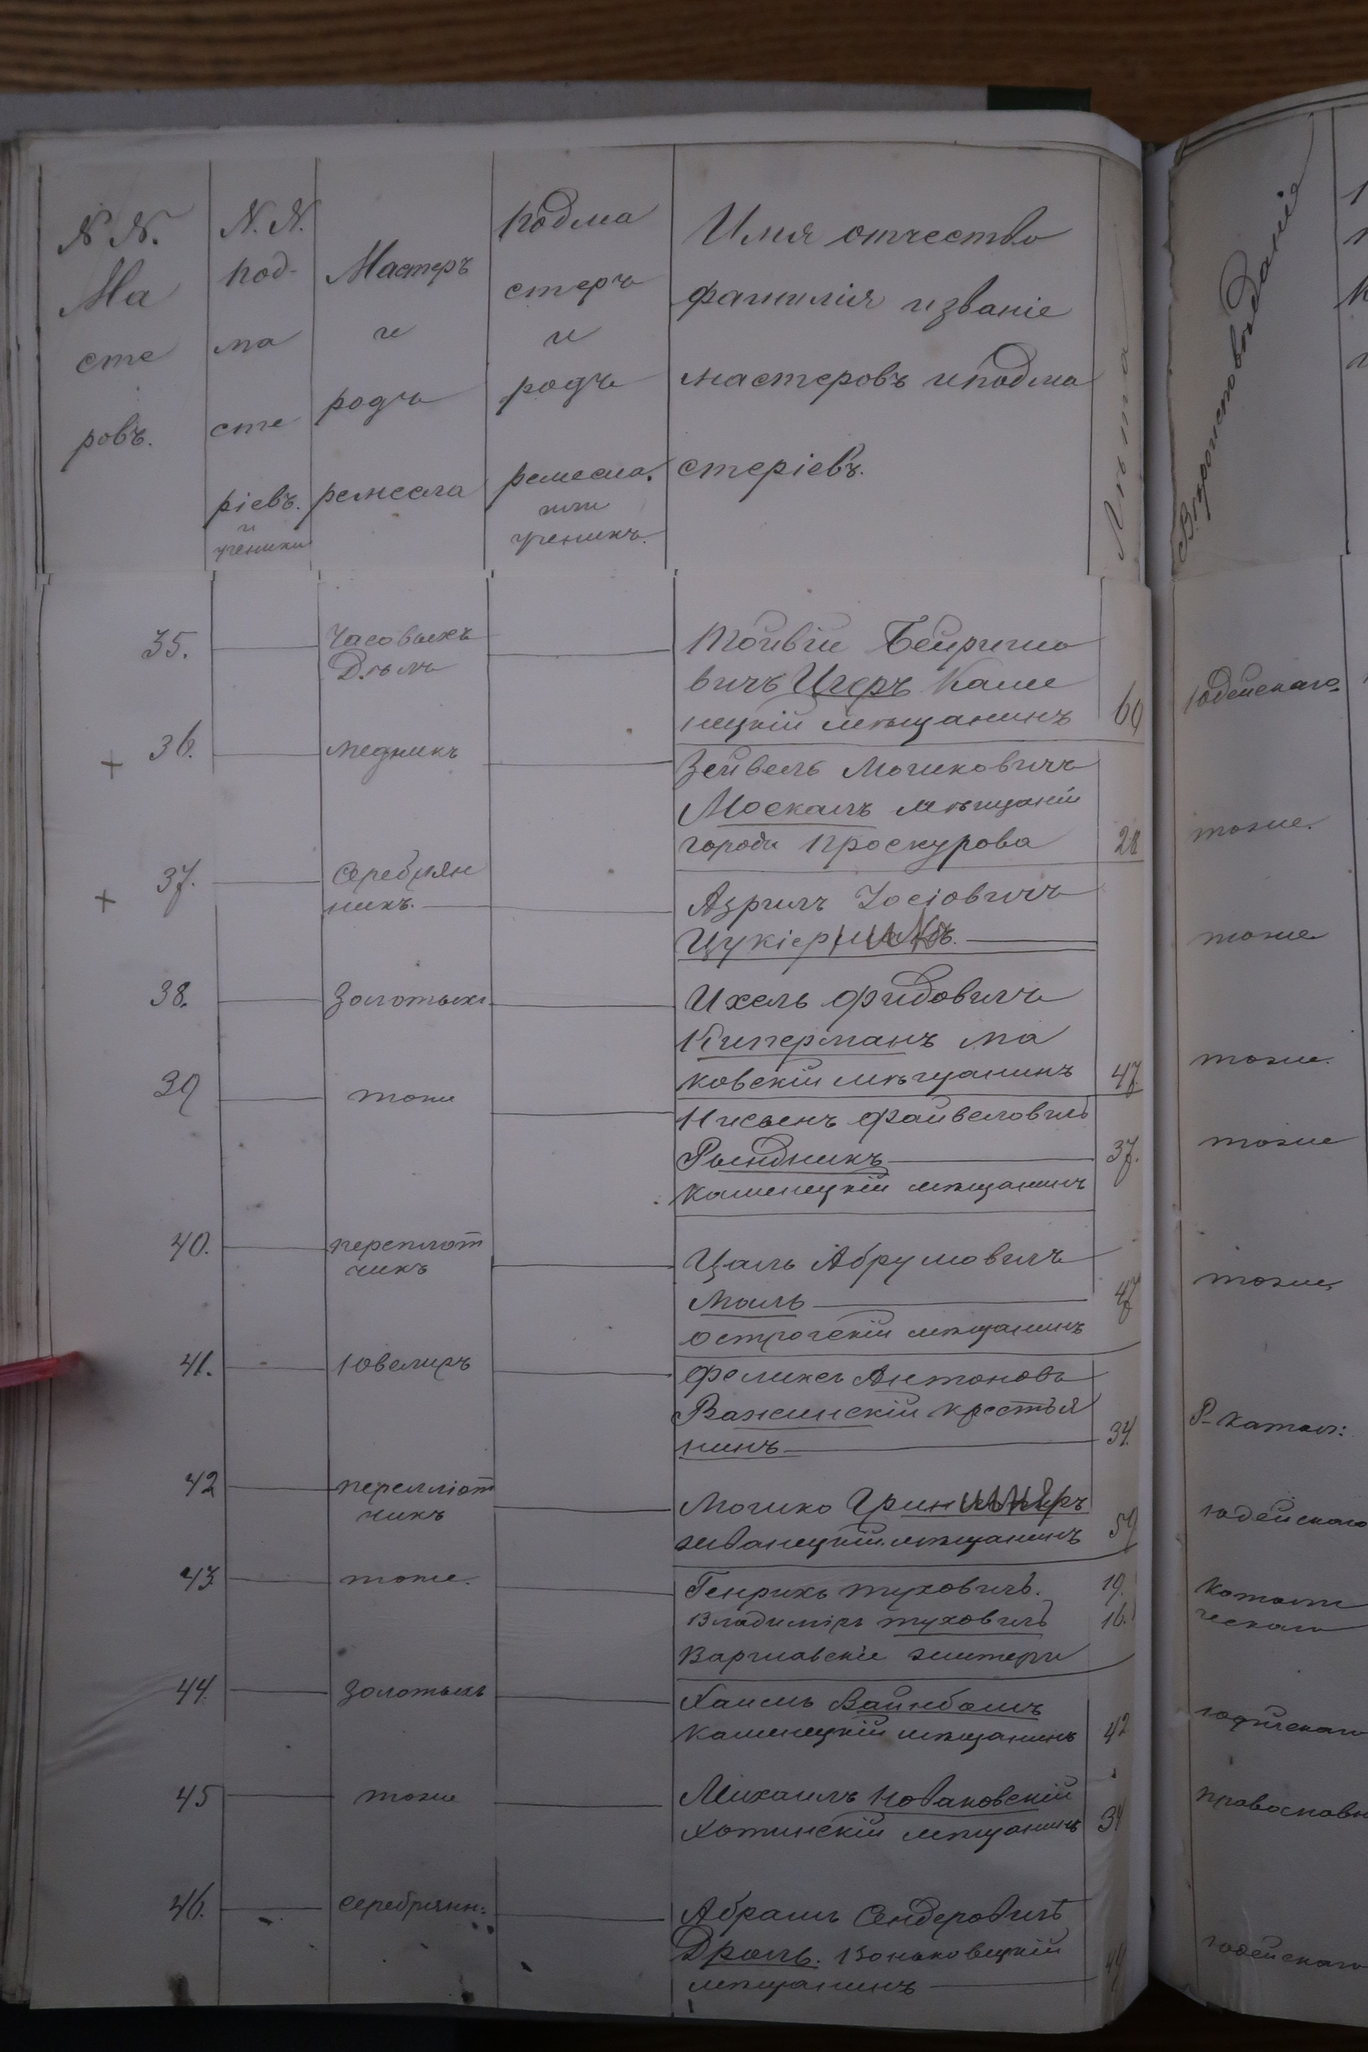 N. N.
Ма
сте
ровъ.
N. N.
под-
ма
сте
ріевъ.
и
ученики
Мастеръ
и
родъ
ремесла
подма
стеръ
и
родъ
ремесла.
или
ученикъ.
Имя отчество
фамилія и званіе
мастеровъ и подма
стеріевъ.
Лѣта
Вѣроисповѣданія
35.
Часовыхъ
Дѣлъ
Тойвій Бейришо
вичъ Игеръ Каме
нецкій мѣщанинъ
60
Іюдейскаго
+ 36.
медникъ
Зейвель Мошковичъ
Москаль мѣщанин
города Проскурова
28
тоже.
+ 37.
Серебрян
никъ.
Азриль Іосіовичъ
Цукierникъ.
тоже
38.
Золотыхъ
Ихель Фридовичъ
Киперманъ ма
ковскій мѣщанинъ
47
тоже.
39
тоже
Нисенъ Файвеловичъ
Рындникъ
Каменецкій мѣщанинъ
37.
тоже
40.
переплот
чикъ
Цаль Абрумовичъ
Маль
острогскій мѣщанинъ
47
тоже
41.
Ювелиръ
Феликсъ Антоновъ
Важинскій крестья
нинъ
34.
Р-Катол:
42
переплiот
чикъ
Мошко Гринш
жванецкій мѣщанинъ
59
іюдейскаго
43
тоже.
Генрихъ Туховичъ.
19.
Владиміръ Туховичъ
16.
Варшавскіе жители
Католи
ческаго
44.
Золотыхъ
Хаимъ Вайнбаумъ
Каменецкій мѣщанинъ
42
іюдейскаго
45
тоже
Михаилъ Новаковскій
Хотинскій мѣщанинъ
34
православн
46.
Серебрянн:
Абрамъ Сендеровичъ
Дроль. Воньковецкій
мѣщанинъ
іюдейскаго